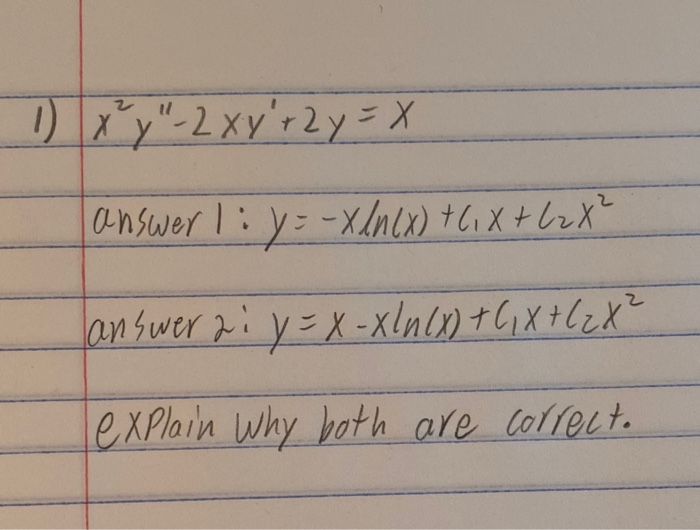 1) x²y"-2xy'+2y=x
answer 1: y=-xln(x)+C₁x+C₂x²
answer 2: y=x-xln(x)+C₁x+C₂x²
explain why both are correct.